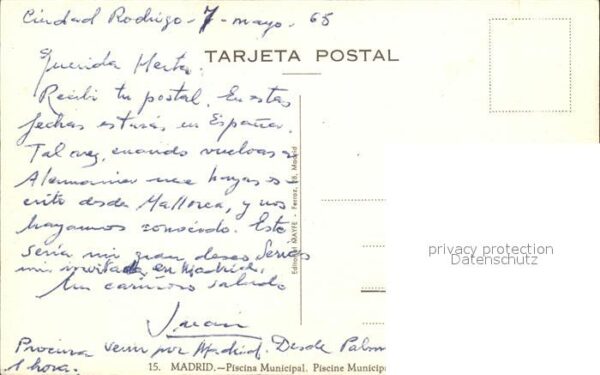 Ciudad Rodrigo - 7 - mayo - 65
TARJETA POSTAL
Querida Herta:
Recibí tu postal. En estas
fechas estarás en España.
Tal vez, cuando vuelvas a
Alemania me hayas es-
crito desde Mallorca, y nos
hayamos conocido. Este
sería mi gran deseo. Serías
mi invitada en Madrid.
Un cariñoso saludo
Juan
Procura venir por Madrid. Desde Palm
1 hora.
Editorial MAYFE - Ferraz, 28, Madrid
privacy protection
Datenschutz
15. MADRID.—Piscina Municipal. Piscine Municipa